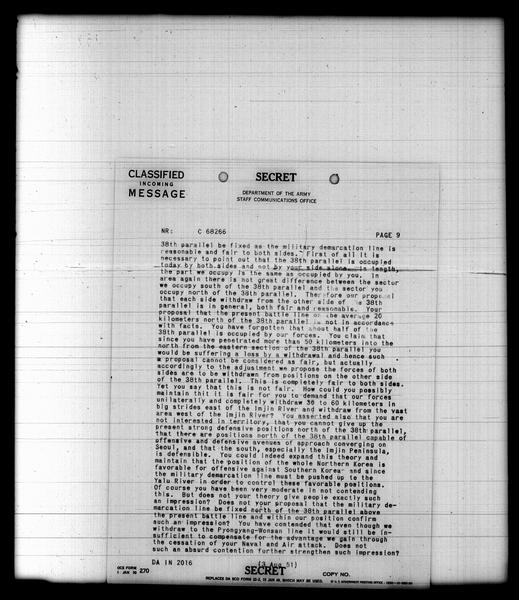 CLASSIFIED
INCOMING
MESSAGE
SECRET
DEPARTMENT OF THE ARMY
STAFF COMMUNICATIONS OFFICE
NR: C 68266 PAGE 9
38th parallel be fixed as the military demarcation line is
reasonable and fair to both sides. First of all it is
necessary to point out that the 38th parallel is occupied
today by both sides and not by your side alone. In length,
the part we occupy is the same as occupied by you. In
area again there is not great difference between the sector
we occupy south of the 38th parallel and the sector you
occupy north of the 38th parallel. Therefore our proposal
that each side withdraw from the other side of the 38th
parallel is in general, both fair and reasonable. Your
proposal that the present battle line on the average 20
kilometers north of the 38th parallel is not in accordance
with facts. You have forgotten that about half of the
38th parallel is occupied by our forces. You claim that
since you have penetrated more than 50 kilometers into the
north from the eastern section of the 38th parallel you
would be suffering a loss by a withdrawal and hence such
a proposal cannot be considered as fair, but actually
accordingly to the adjustment we propose the forces of both
sides are to be withdrawn from positions on the other side
of the 38th parallel. This is completely fair to both sides.
Yet you say that this is not fair. How could you possibly
maintain that it is fair for you to demand that our forces
unilaterally and completely withdraw 38 to 60 kilometers in
big strides east of the Imjin River and withdraw from the vast
area west of the Imjin River? You asserted also that you are
not interested in territory, that you cannot give up the
present strong defensive positions north of the 38th parallel,
that there are positions north of the 38th parallel capable of
offensive and defensive avenues of approach converging on
Seoul, and that the south, especially the Imjin Peninsula,
is defensible. You could indeed expand this theory and
maintain that the position of the whole Northern Korea is
favorable for offensive against Southern Korea and since
the military demarcation line must be pushed up to the
Yalu River in order to control these favorable positions.
Of course you have been very moderate in not contending
this. But does not your theory give people exactly such
an impression? Does not your proposal that the military de-
marcation line be fixed north of the 38th parallel above
the present battle line and within our position confirm
such an impression? You have contended that even though we
withdraw to the Pyongyang-Wonsan line it would still be in-
sufficient to compensate for the advantage we gain through
the cessation of your Naval and Air attack. Does not
such an absurd contention further strengthen such impression?
DA IN 2016 (3 Aug 51)
OCS FORM
1 JAN 50 270
SECRET
COPY NO.
REPLACES DA SCO FORM 22-2, 15 JAN 49, WHICH MAY BE USED.